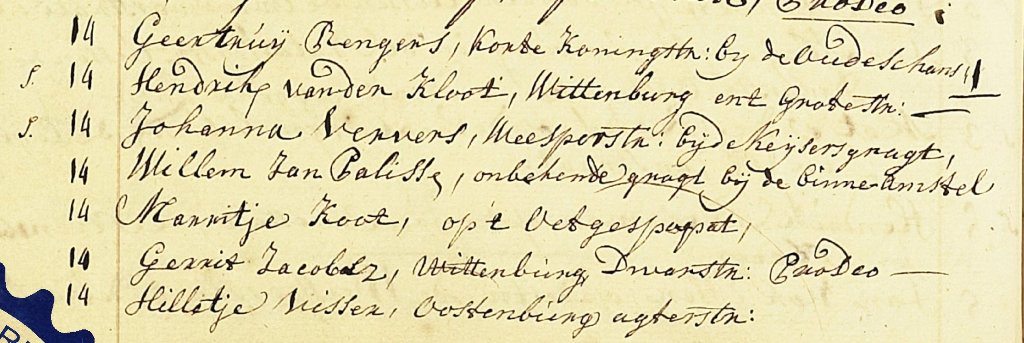 ProDeo
14 Geertruy Rengers, Korte Koningstr: by de Oudeschans, 1
f. 14 Hendrik vanden Kloot, Wittenburg ent Grotestr: —
f. 14 Johanna Ververs, Weesperstr: bij de Keysersgragt,
14 Willem Jan Palisse, onbekende gragt bij de binne-amstel
14 Marritje Koot, op't
14 Gerrit Jacobsz, Wittenburg, Dwarstr: ProDeo —
14 Hilletje Visser, Oostenburg agterstr: